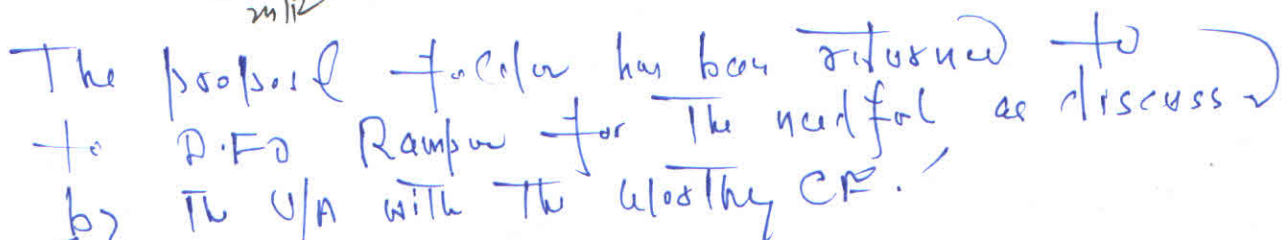 The proposal folder has been returned to
to D.FO Rampur for the needful as discussed
by the U/A with the worthy CF.